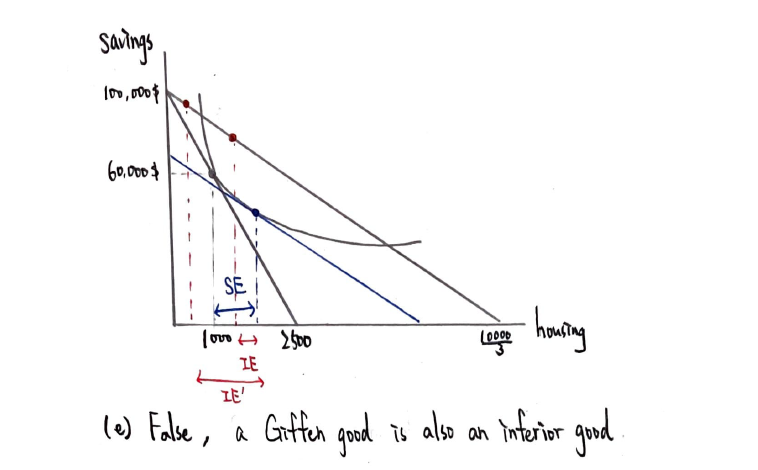 Savings
100,000$
60,000$
SE
1000
2500
10000
3
housing
IE
IE'
(e) False, a Giffen good is also an inferior good